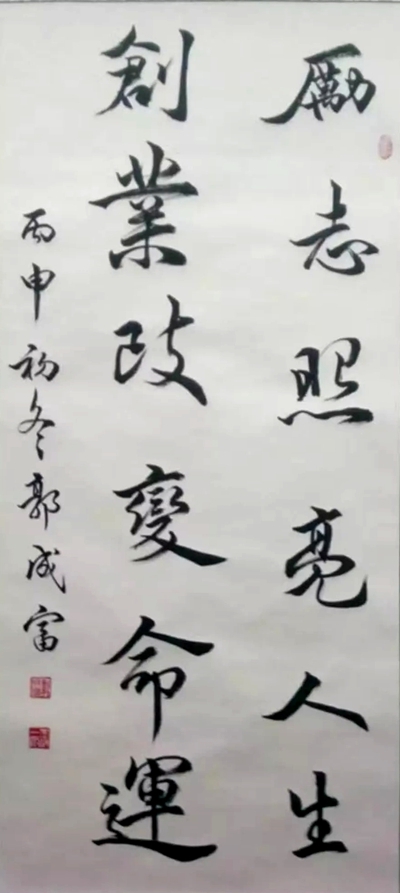 勵志照亮人生
創業改變命運
丙申初冬郭成富